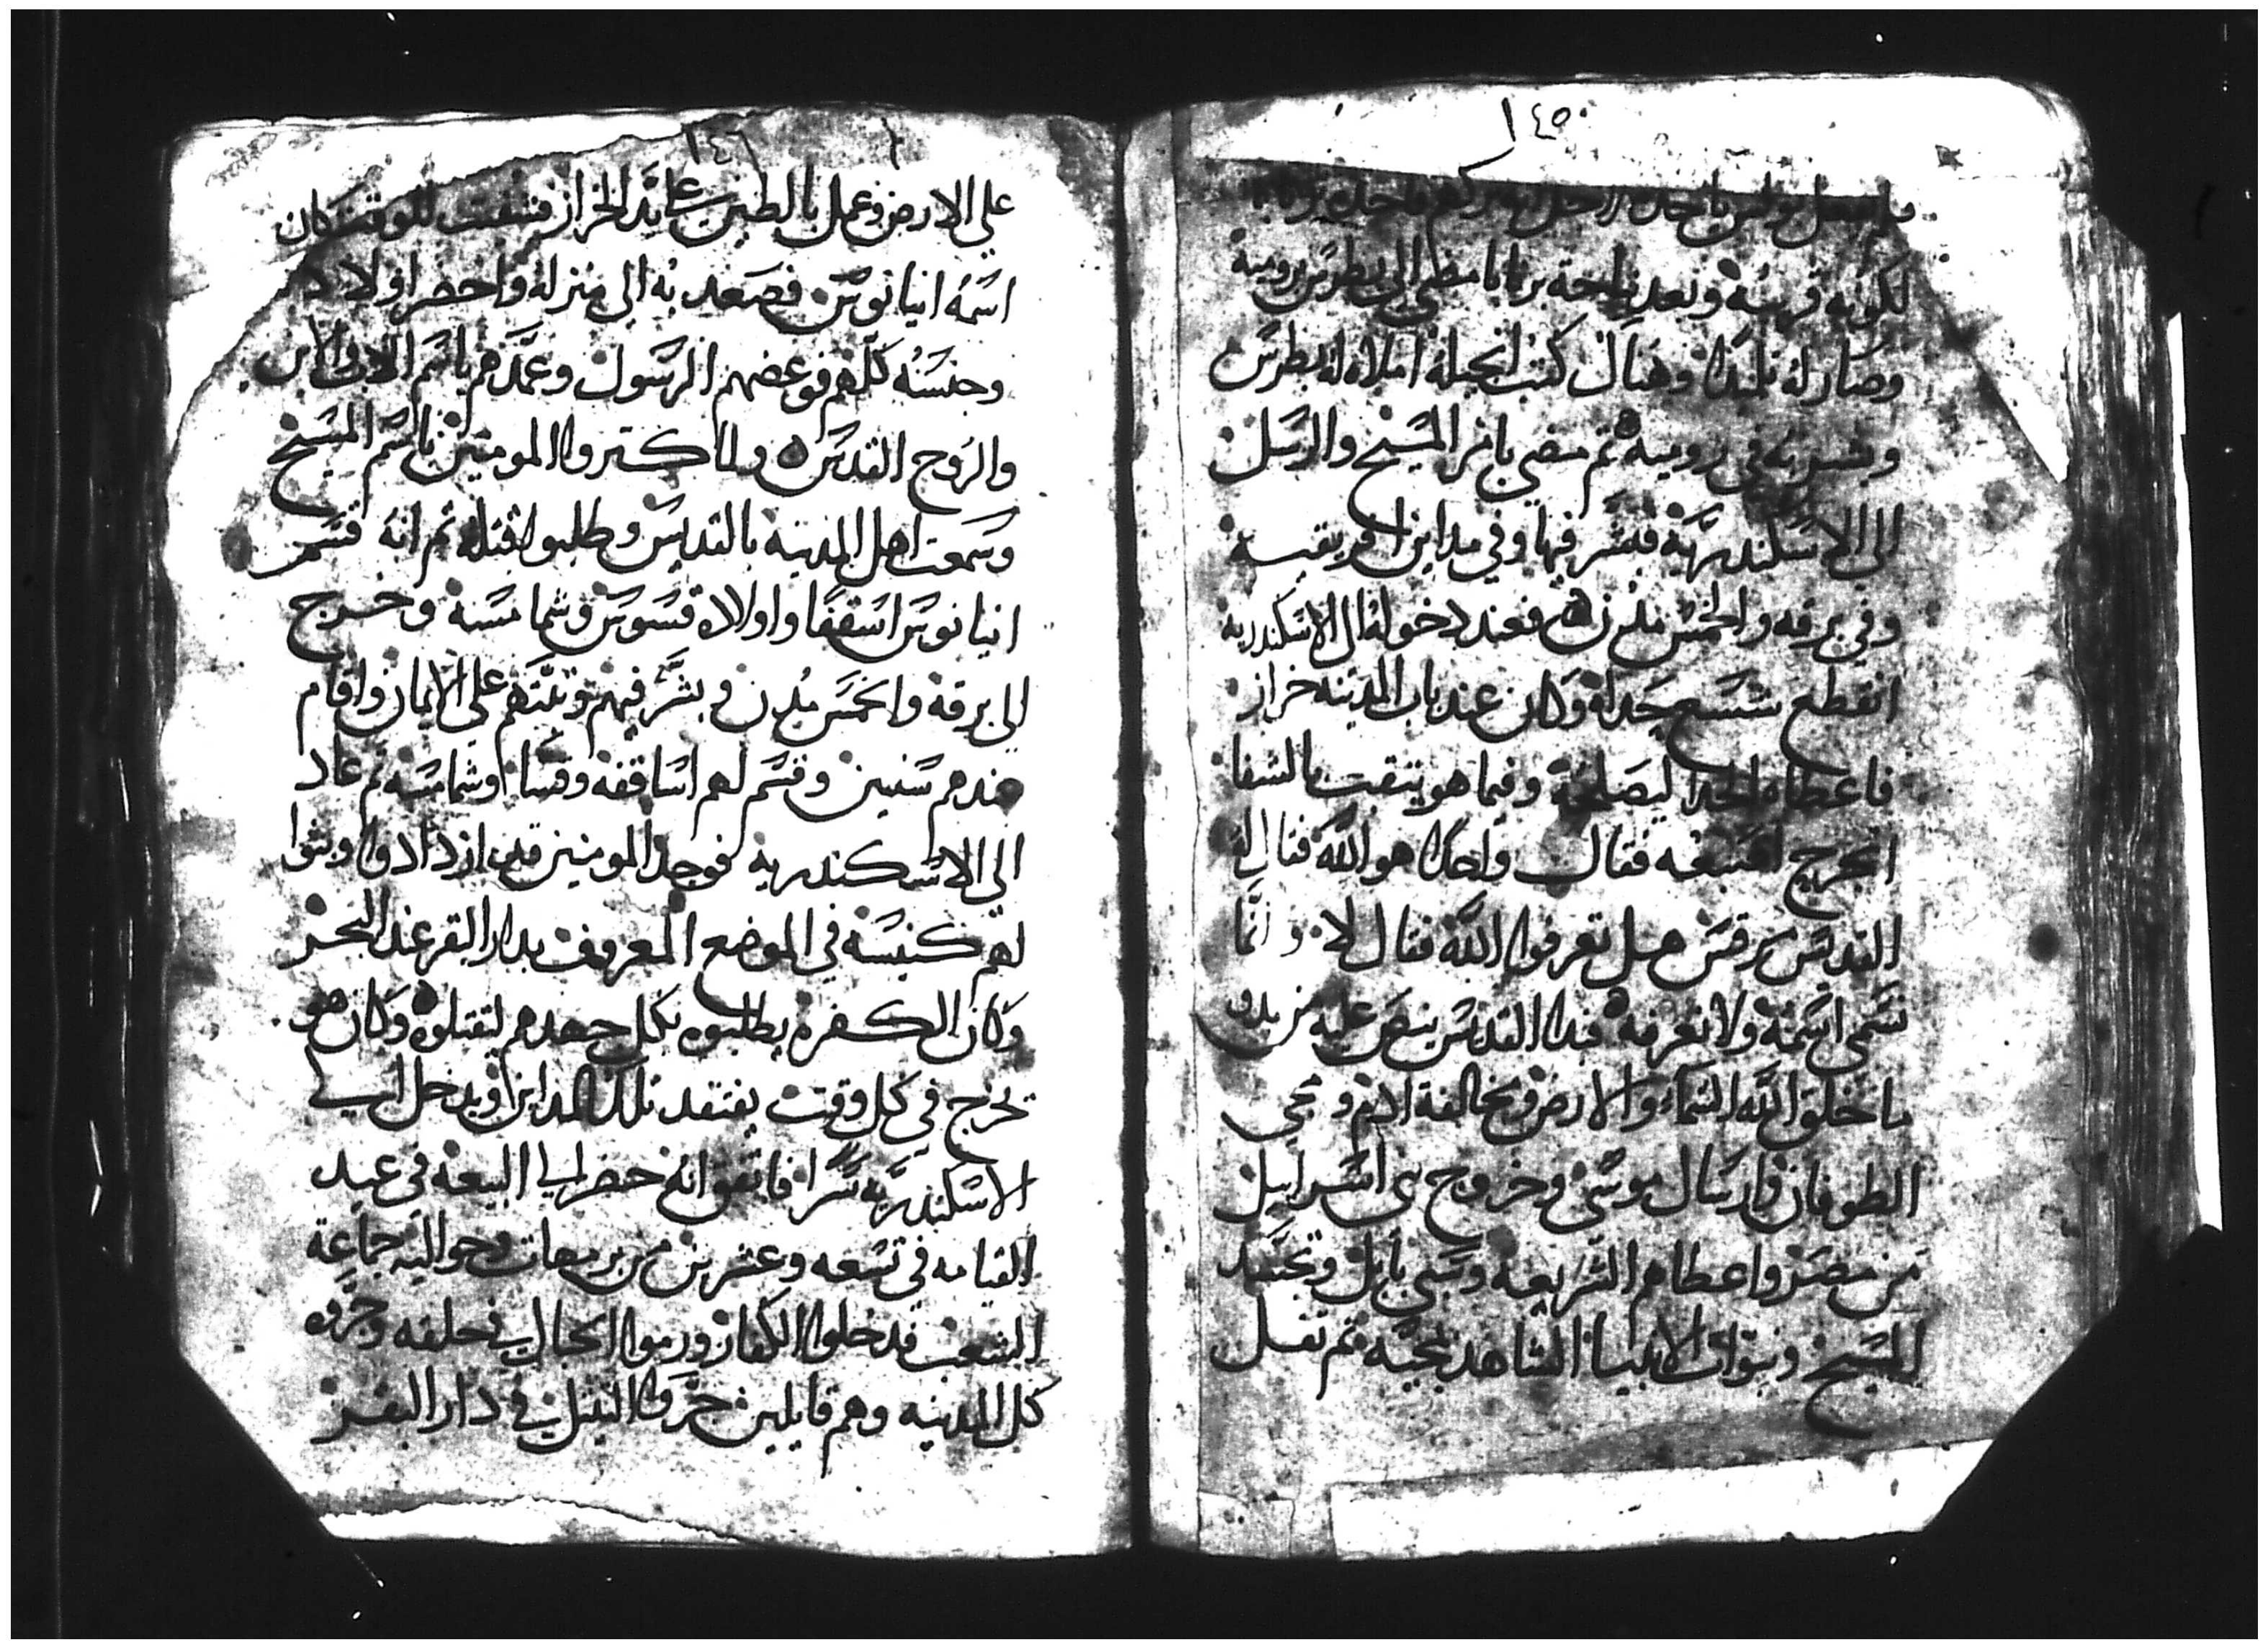 ١٤٥
لكونه قريبه وبعد نياحة برنابا مضي الى بطرس برومية
وصار له تلميذا وهناك كتب انجيله املاه له بطرس
وبشر به في رومية ثم مضي بامر المسيح والرسل
الى الاسكندرية فبشر فيها وفي مداين افريقية
وفي برقه والخمس مدن فعند دخوله الى الاسكندرية
انقطع شسع حداه وكان عند باب المدينه خراز
فاعطاه الحدا ليصلحه وفيما هو يثقب بالشفا
انجرح اصبعه فقال واحدا هو الله فقال له
القديس مرقس هل تعرفوا الله فقال لا وانما
نسمى اسمه ولا نعرفه فبدا القديس ينص عليه من بدو
ما خلق الله السماء والارض ومخالفة ادم ومجي
الطوفان وارسال موسى وخروج بني اسراييل
من مصر واعطاهم الشريعه وسبي بابل وتجسد
المسيح ونبوات الانبيا الشاهده بمجيه ثم تفل
١٤٦
علي الارض وعمل بالطين علي يد الخراز فشفت للوقت وكان
اسمه انيانوس فصعد به الى منزله واحضر اولاده
وجنسه كلهم فوعضهم الرسول وعمدهم باسم الاب والابن
والروح القدس ولما كتروا المومنين باسم المسيح
وسمعت اهل المدينة بالقديس وطلبوا قتله ثم انه قسم
انيانوس اسقفا واولاده قسوس وشمامسه وخرج
الى برقة والخمس مدن وبشر فيهم وثبتهم على الايمان واقام
عندهم سنين وقسم لهم اساقفه وقسا وشمامسه ثم عاد
الى الاسكندريه فوجد المومنين قد ازدادوا وبنوا
لهم كنيسه في الموضع المعروف بدار البقر عند البحر
وكان الكفره يطلبوه بكل جهدهم ليقتلوه وكان هو
يخرج في كل وقت يفتقد تلك المداين ويدخل الي
الاسكندرية سرا فاتفق انه حضر الي البيعه في عيد
القيامه في تسعه وعشرين من برمهات وحواليه جماعة
الشعب فدخلوا الكفار ورموا الحبال في حلقه وجروه
كل المدينه وهم قايلين جروا التيتل في دار البقر